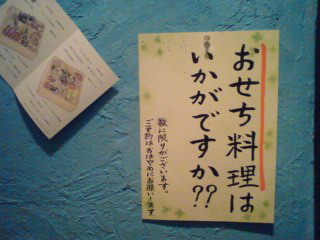 おせち料理は
いかがですか??
数に限りがございます。
ご予約はおはやめにお願いします